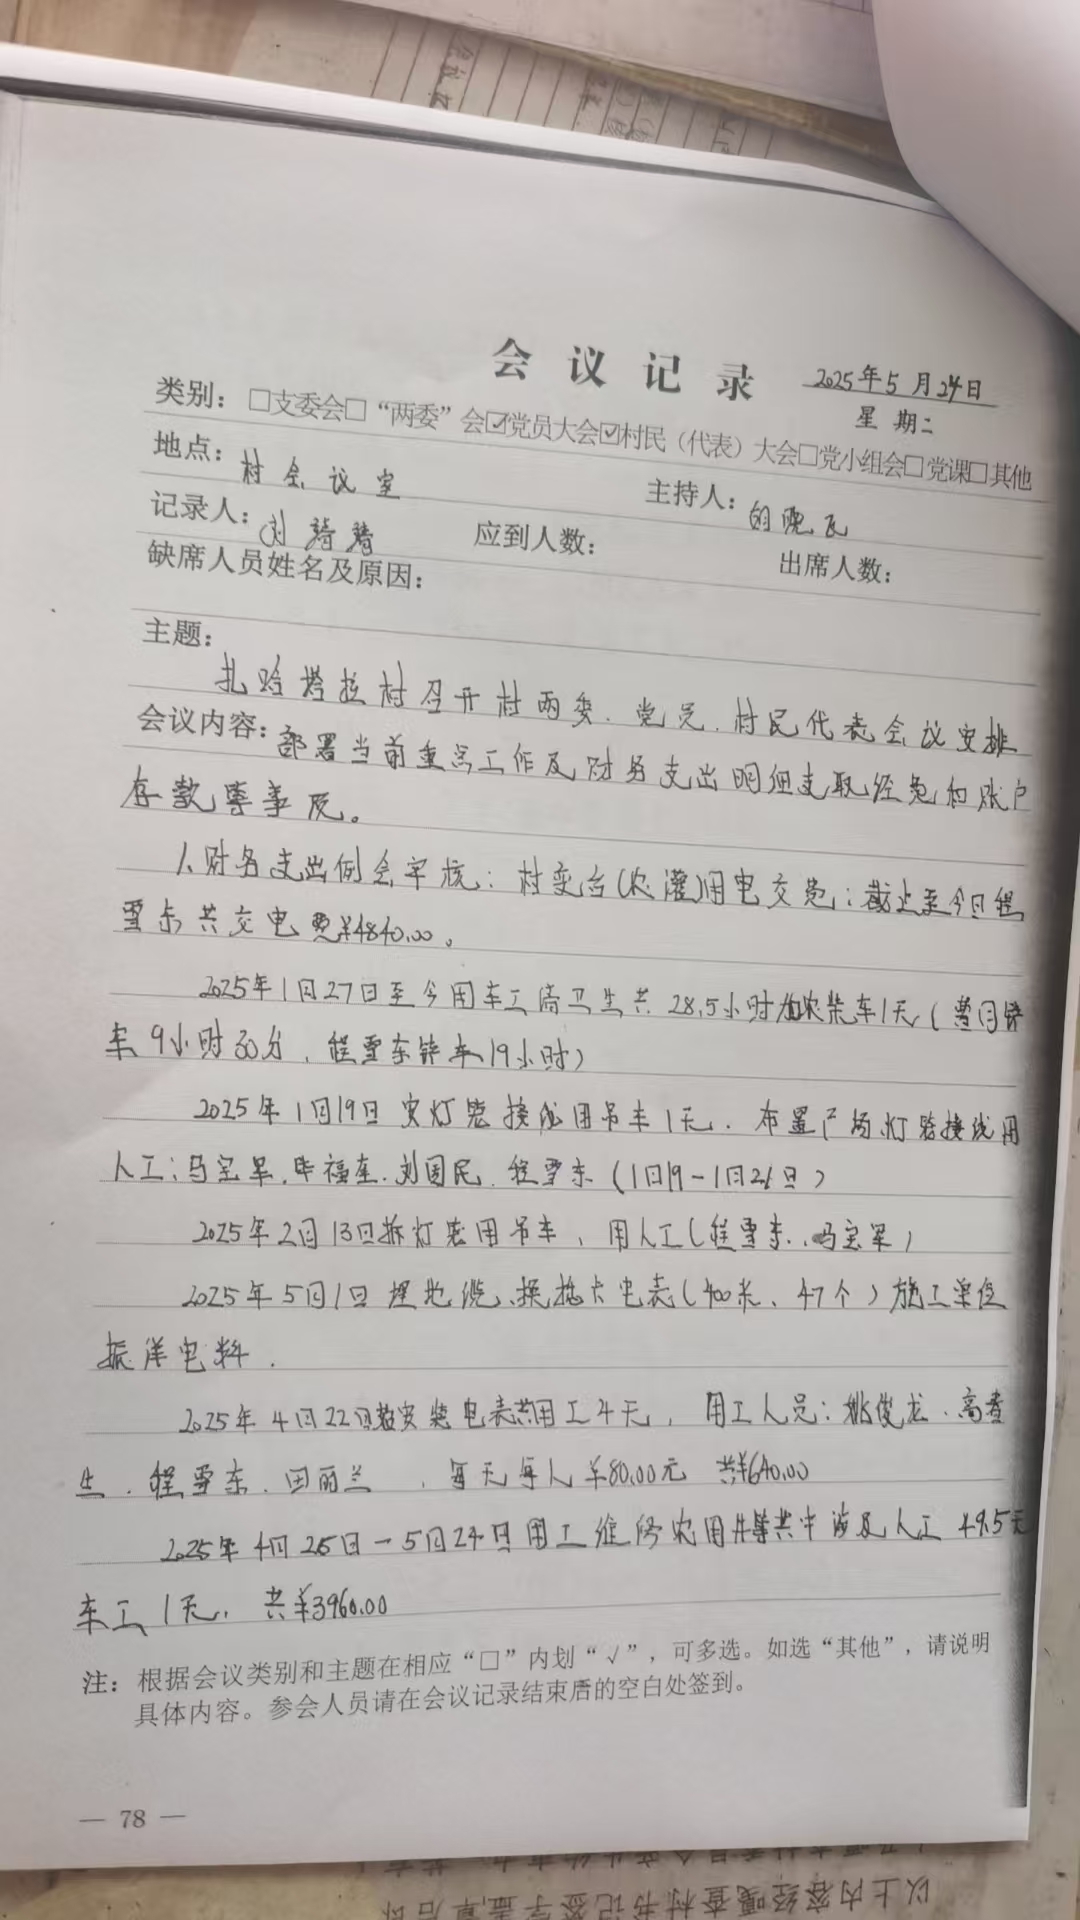 会议记录
2025年5月24日
星期二
类别：□支委会□“两委”会☑党员大会☑村民（代表）大会□党小组会□党课□其他
地点：村会议室
主持人：
记录人：刘
应到人数：
出席人数：
缺席人员姓名及原因：
主题：
扎哈塔拉村召开村两委、党员、村民代表会议安排
会议内容：部署当前重点工作及财务支出明细支取经费和账户
存款等事宜。
1、财务支出例会审核：村变台(农灌)用电交费：截止至今日程
雪东共交电费¥4840.00。
2025年1月27日至今用车工清卫生共28.5小时加农柴车1天(
车9小时30分、程雪东铲车19小时)
2025年1月19日安灯笼接线用吊车1天、布置广场灯笼接线用
人工：马宝军、毕福奎、刘国民、程雪东(1月19-1月26日)
2025年2月13日拆灯笼用吊车，用人工(程雪东、马宝军)
2025年5月1日埋地缆、换插卡电表(400米、47个)施工单位
振洋电料.
2025年4月22日安装电表共用工4天，用工人员：姚俊龙、高
生、程雪东、田丽兰，每天每人¥80.00元 共¥640.00
2025年4月25日-5月24日用工维修农用井等共中涉及人工49.5天
车工1天，共¥3960.00
注：根据会议类别和主题在相应“□”内划“√”，可多选。如选“其他”，请说明
具体内容。参会人员请在会议记录结束后的空白处签到。
— 78 —